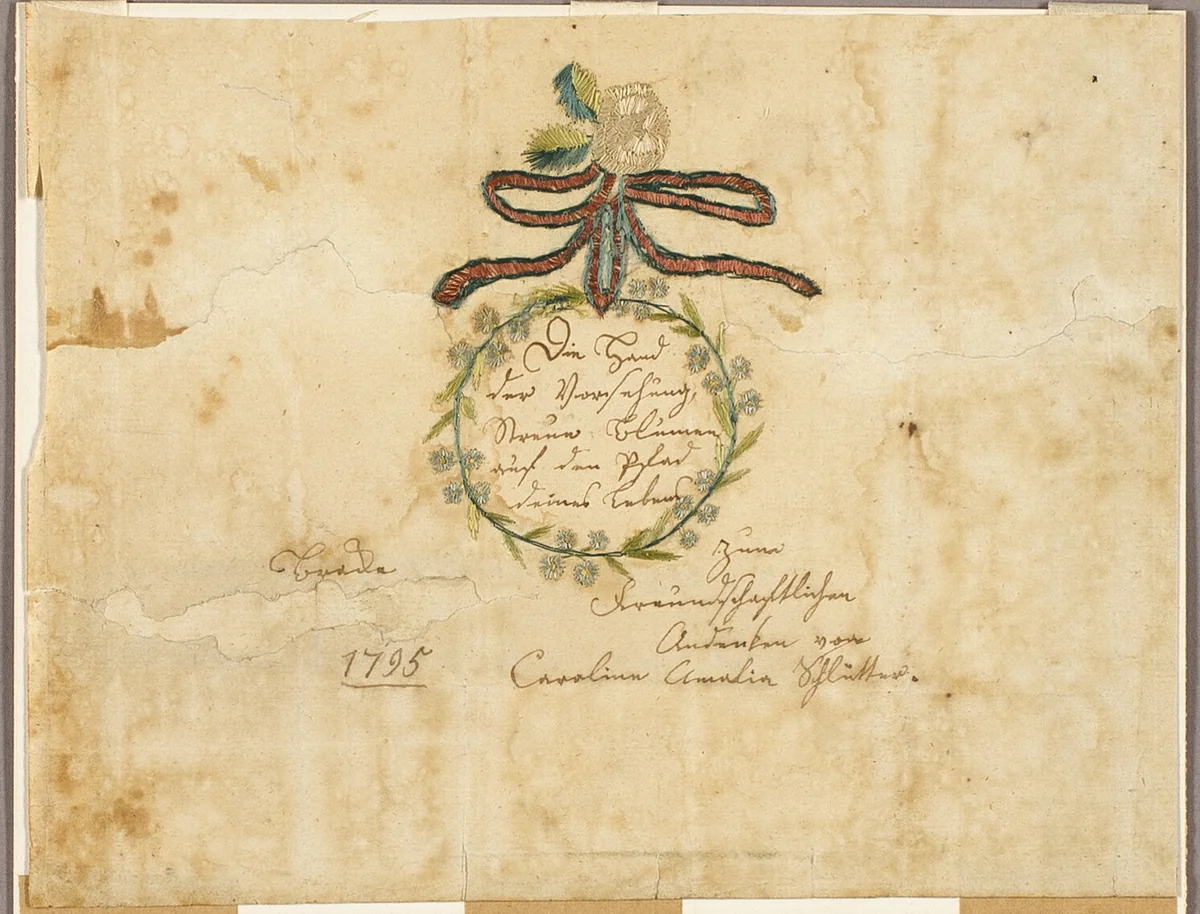 Die Hand
der Vorsehung,
Streue Blumen
auf den Pfad
deines Lebens
Brake
1795
zum
Freundschaftlichen
Andenken von
Caroline Amalia Schlütter.